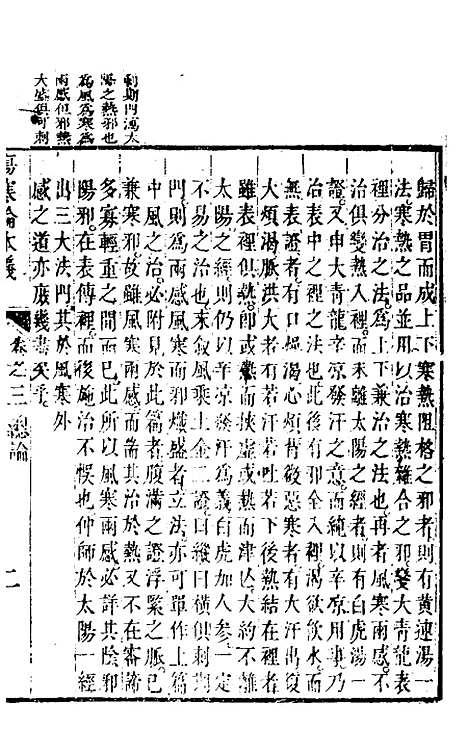 歸於胃而成上下寒熱阻格之邪者則有黃連湯一
法寒熱之品並用以治寒熱雜合之邪變大青龍表
裡分治之法為上下兼治之法也再者風寒兩感不
治俱變熱入裡而未離太陽之經者則有白虎湯一
證又申大青龍辛凉發汗之意而純以辛凉用事乃
治表中之裡之法也此後有邪全入裡渴欲飲水而
無表證者有口燥渴心煩背微惡寒者有大汗出復
大煩渴脈洪大者有若汗若吐若下後熱結在裡者
雖表裡俱熱即或熱而挾虛或熱而津亡大約不離
太陽之經則仍以辛凉發汗為義白虎加人參一定
不易之治也末敘風乘土金二證曰縱曰橫俱刺期
門則為兩感風寒而邪熾盛者立法亦可單作上篇
中風之治必附見於此篇者腹滿之證浮緊之脈已
兼寒邪故雖風寒兩感而需其治於熱又不在審諦
多寡輕重之間而已此所以風寒兩感必詳其陰邪
陽邪在表傳裡而後施治不悞也仲師於太陽一經
出三大法門其於風寒外
感之道亦庶幾書矣乎
刺期門瀉太
陽之熱邪也
為風為寒為
兩感但邪熱
大盛俱可刺
傷寒論本義
卷之三
總論
二